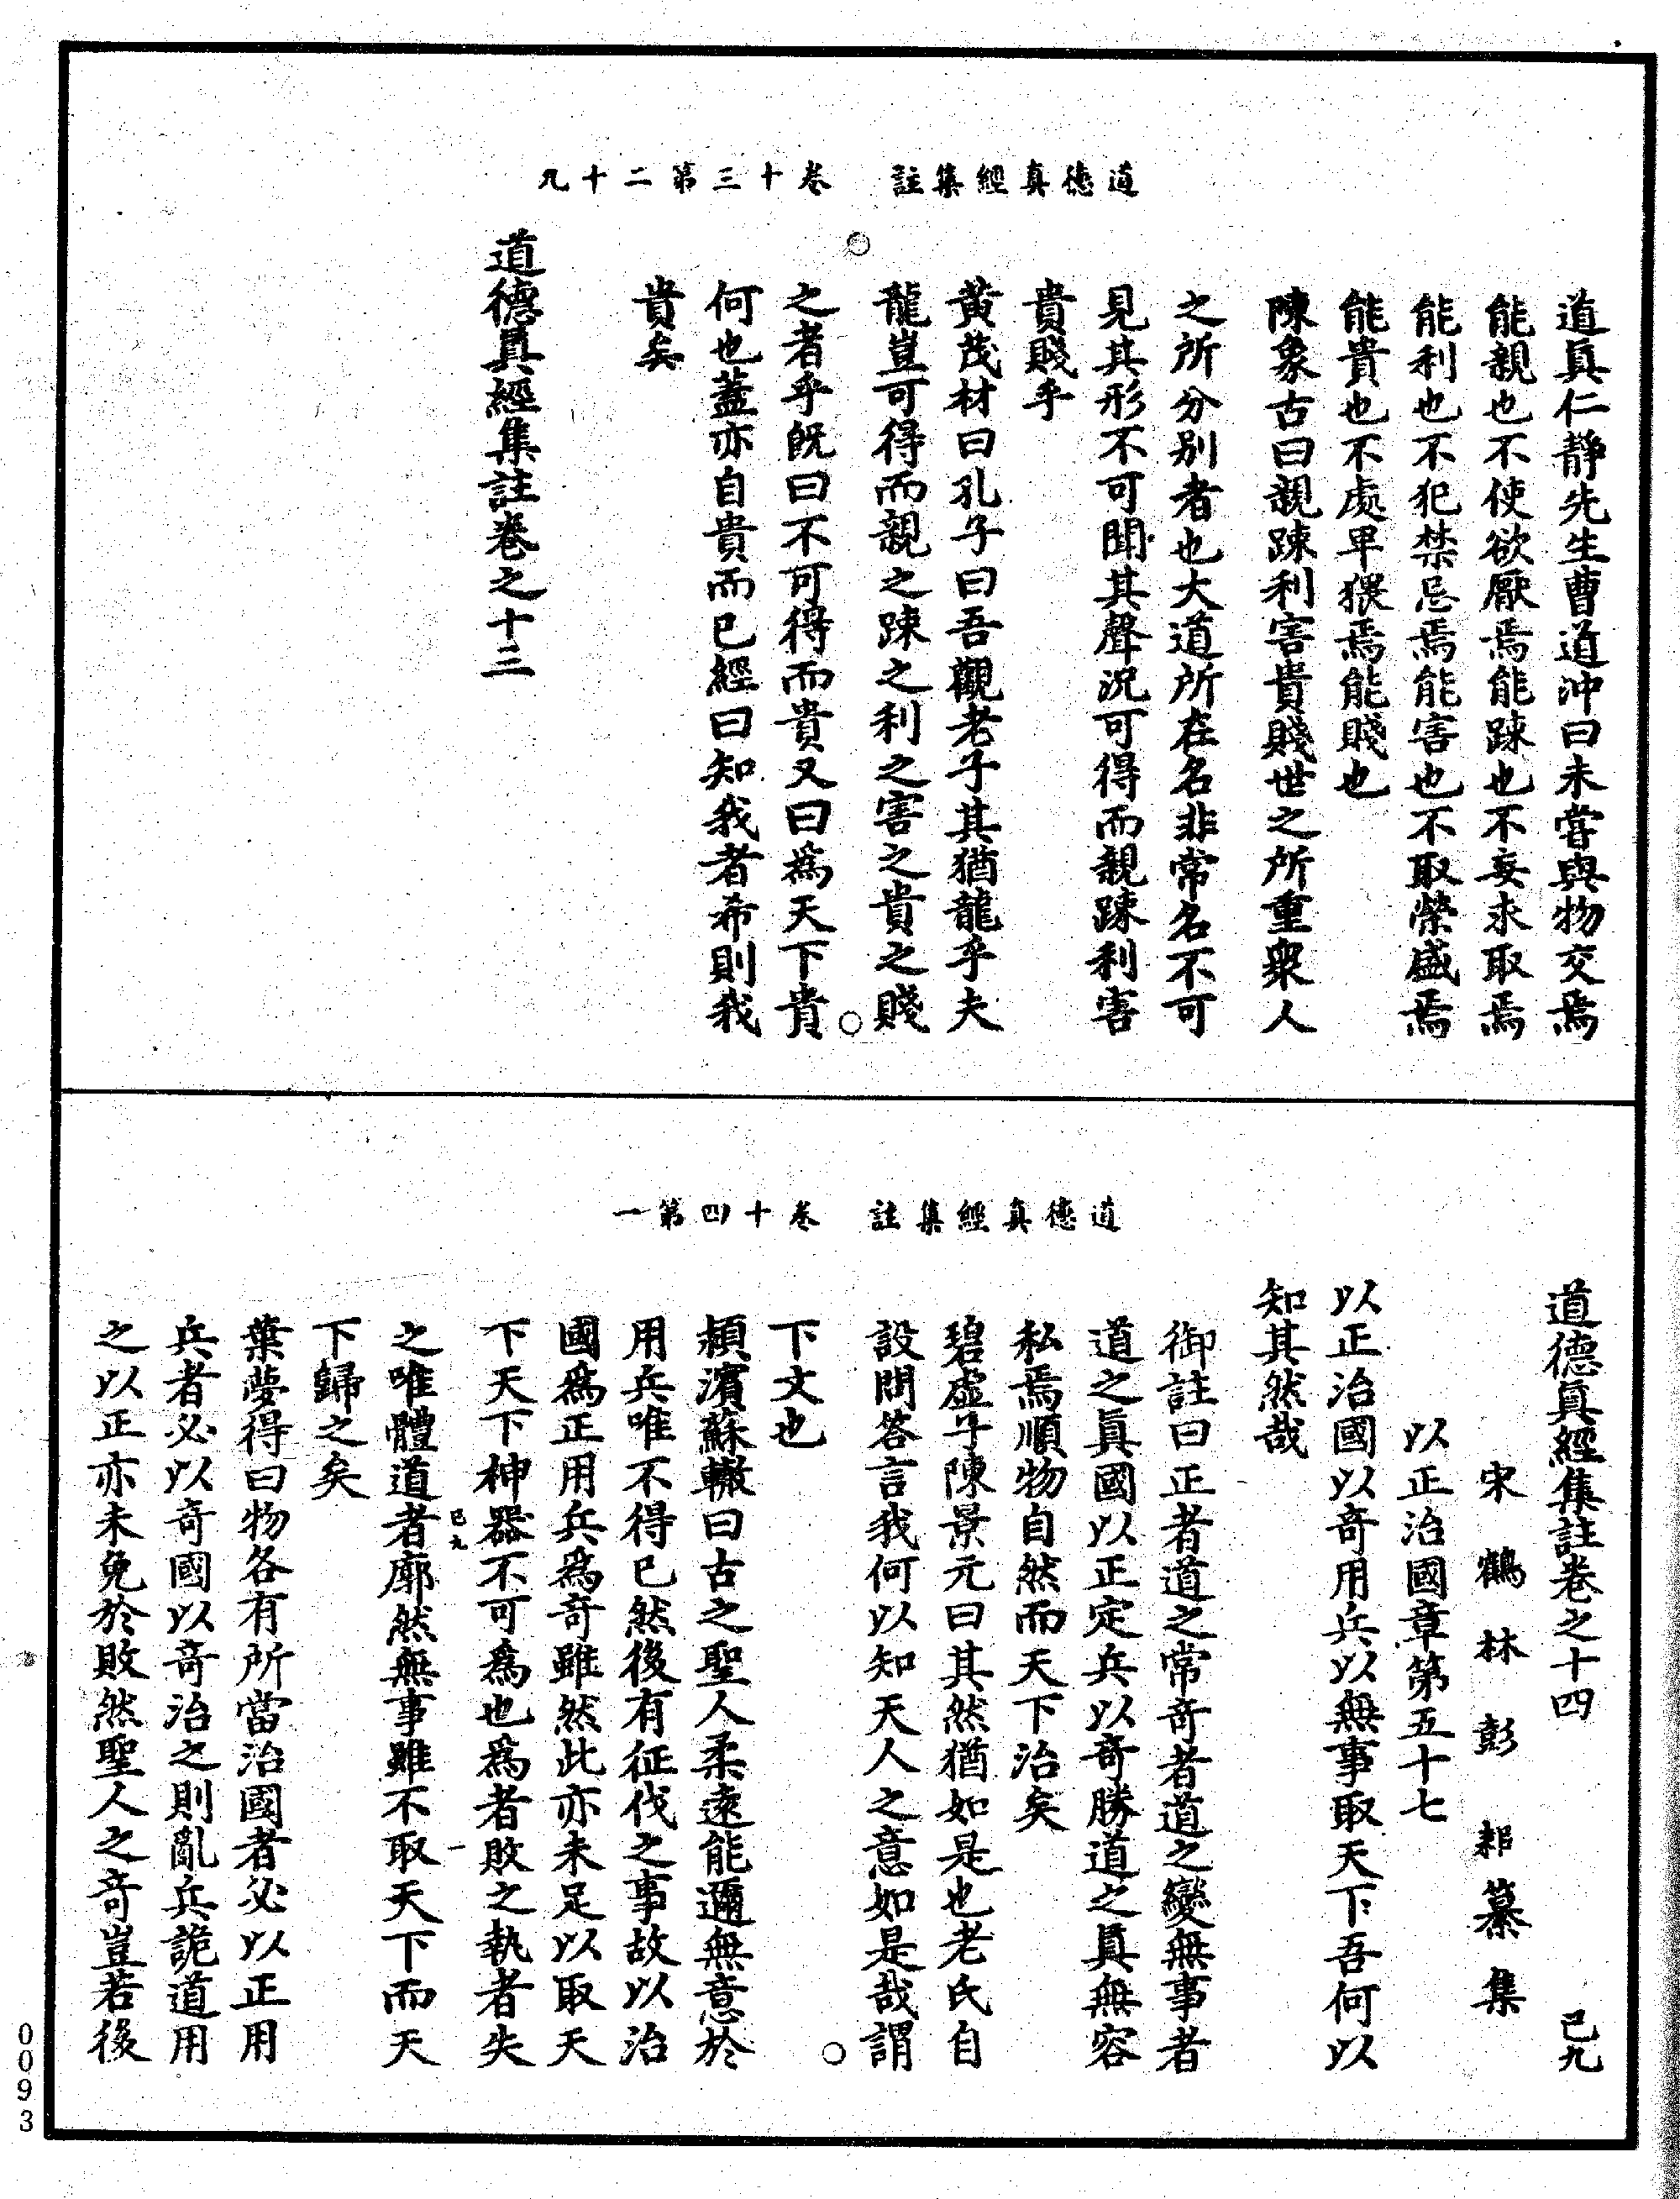 道德真經集註　卷十三第二十九
道真仁靜先生曹道沖曰未嘗與物交焉
能親也不使欲厭焉能踈也不妄求取焉
能利也不犯禁忌焉能害也不取榮盛焉
能貴也不處卑猥焉能賤也
陳象古曰親踈利害貴賤世之所重衆人
之所分别者也大道所在名非常名不可
見其形不可聞其聲況可得而親踈利害
貴賤乎
黃茂材曰孔子曰吾觀老子其猶龍乎夫
龍豈可得而親之踈之利之害之貴之賤
之者乎旣曰不可得而貴又曰爲天下貴
何也蓋亦自貴而已經曰知我者希則我
貴矣
道德真經集註卷之十三
道德真經集註　卷十四第一
道德真經集註卷之十四　己九
宋鶴林彭耜纂集
以正治國章第五十七
以正治國以奇用兵以無事取天下吾何以
知其然哉
御註曰正者道之常奇者道之變無事者
道之真國以正定兵以奇勝道之真無容
私焉順物自然而天下治矣
碧虛子陳景元曰其然猶如是也老氏自
設問答言我何以知天人之意如是哉謂
下文也
潁濱蘇轍曰古之聖人柔遠能邇無意於
用兵唯不得已然後有征伐之事故以治
國爲正用兵爲奇雖然此亦未足以取天
下天下神器不可爲也爲者敗之執者失
己九　一
之唯體道者廓然無事雖不取天下而天
下歸之矣
葉夢得曰物各有所當治國者必以正用
兵者必以奇國以奇治之則亂兵詭道用
之以正亦未免於敗然聖人之奇豈若後
0093